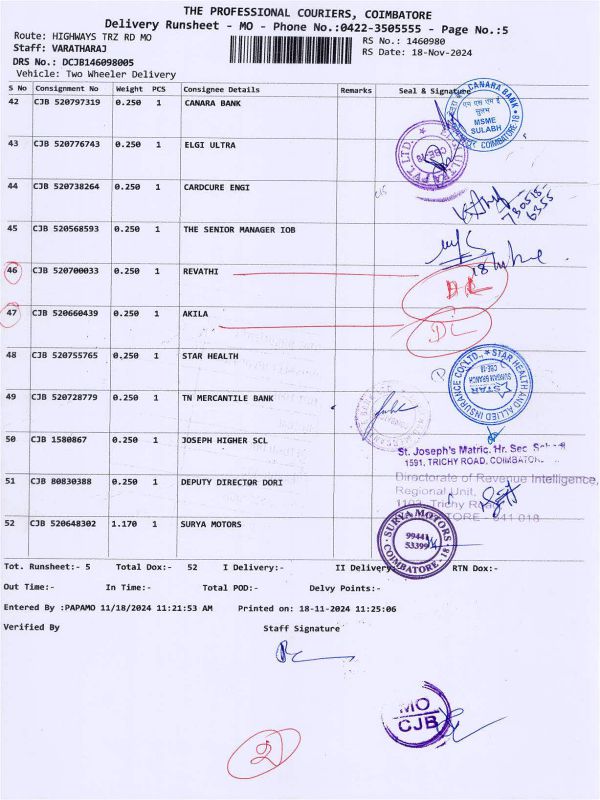 THE PROFESSIONAL COURIERS, COIMBATORE
Delivery Runsheet - MO - Phone No.:0422-3505555 - Page No.:5
Route: HIGHWAYS TRZ RD MO
RS No.: 1460980
Staff: VARATHARAJ
RS Date: 18-Nov-2024
DRS No.: DCJB146098005
Vehicle: Two Wheeler Delivery
S No Consignment No Weight PCS Consignee Details Remarks Seal & Signature
42 CJB 520797319 0.250 1 CANARA BANK
CANARA BANK
MSME
SULABH
COIMBATORE-18
43 CJB 520776743 0.250 1 ELGI ULTRA
PVT. LTD.
CBE-18
44 CJB 520738264 0.250 1 CARDCURE ENGI
730515-
6355
45 CJB 520568593 0.250 1 THE SENIOR MANAGER IOB
46 CJB 520700033 0.250 1 REVATHI
DL
47 CJB 520660439 0.250 1 AKILA
DL
48 CJB 520755765 0.250 1 STAR HEALTH
STAR HEALTH AND ALLIED INSURANCE CO.LTD.,
CBE-18
SUNGAM BRANCH
STAR
49 CJB 520728779 0.250 1 TN MERCANTILE BANK
50 CJB 1580867 0.250 1 JOSEPH HIGHER SCL
St. Joseph's Matric. Hr. Sec
1591, TRICHY ROAD, COIMBATO
51 CJB 80830388 0.250 1 DEPUTY DIRECTOR DORI
Directorate of Revenue Intelligence,
Regional Unit,
Trichy Road
641 018
52 CJB 520648302 1.170 1 SURYA MOTORS
SURYA MOTORS
99441
53399
COIMBATORE - 18
Tot. Runsheet:- 5 Total Dox:- 52 I Delivery:- II Delivery:- RTN Dox:-
Out Time:- In Time:- Total POD:- Delvy Points:-
Entered By :PAPAMO 11/18/2024 11:21:53 AM Printed on: 18-11-2024 11:25:06
Verified By Staff Signature
MO
CJB
2